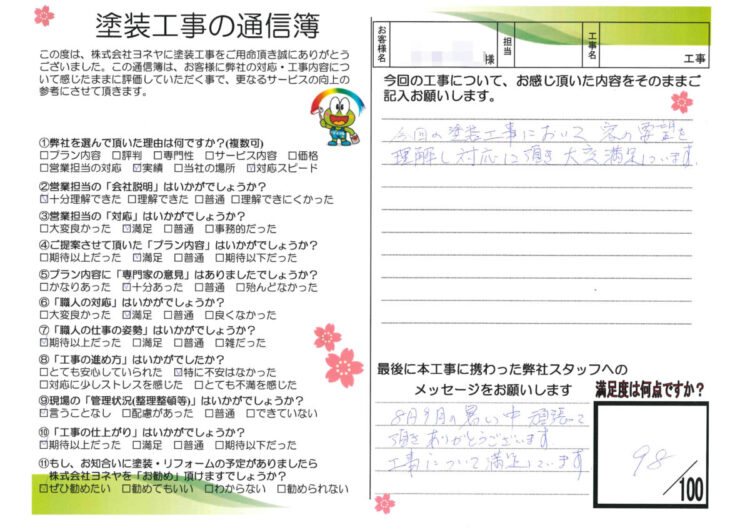 塗装工事の通信簿
この度は、株式会社ヨネヤに塗装工事をご用命頂き誠にありがとう
ございました。この通信簿は、お客様に弊社の対応・工事内容につ
いて感じたままに評価していただく事で、更なるサービスの向上の
参考にさせて頂きます。
①弊社を選んで頂いた理由は何ですか?(複数可)
□プラン内容 □評判 □専門性 □サービス内容 □価格
□営業担当の対応 ☑実績 □当社の場所 ☑対応スピード
②営業担当の「会社説明」はいかがでしょうか?
☑十分理解できた □理解できた □普通 □理解できにくかった
③営業担当の「対応」はいかがでしょうか?
□大変良かった ☑満足 □普通 □事務的だった
④ご提案させて頂いた「プラン内容」はいかがでしょうか?
□期待以上だった ☑満足 □普通 □期待以下だった
⑤プラン内容に「専門家の意見」はありましたでしょうか?
□かなりあった ☑十分あった □普通 □殆んどなかった
⑥「職人の対応」はいかがでしょうか?
□大変良かった ☑満足 □普通 □良くなかった
⑦「職人の仕事の姿勢」はいかがでしょうか?
☑期待以上だった □満足 □普通 □雑だった
⑧「工事の進め方」はいかがでしたか?
□とても安心していられた ☑特に不安はなかった
□対応に少しストレスを感じた □とても不満を感じた
⑨現場の「管理状況(整理整頓等)」はいかがでしょうか?
☑言うことなし □配慮があった □普通 □できていない
⑩「工事の仕上がり」はいかがでしょうか?
☑期待以上だった □満足 □普通 □期待以下だった
⑪もし、お知合いに塗装・リフォームの予定がありましたら
株式会社ヨネヤを「お勧め」頂けますでしょうか?
☑ぜひ勧めたい □勧めてもいい □わからない □勧められない
お客様名 様 担当 工事名 工事
今回の工事について、お感じ頂いた内容をそのままご
記入お願いします。
今回の塗装工事において 家の要望を
理解し対応して頂き 大変満足しています
最後に本工事に携わった弊社スタッフへの
メッセージをお願いします
8月9月の暑い中 頑張って
頂き ありがとうございます
工事について満足しています
満足度は何点ですか?
98
/100